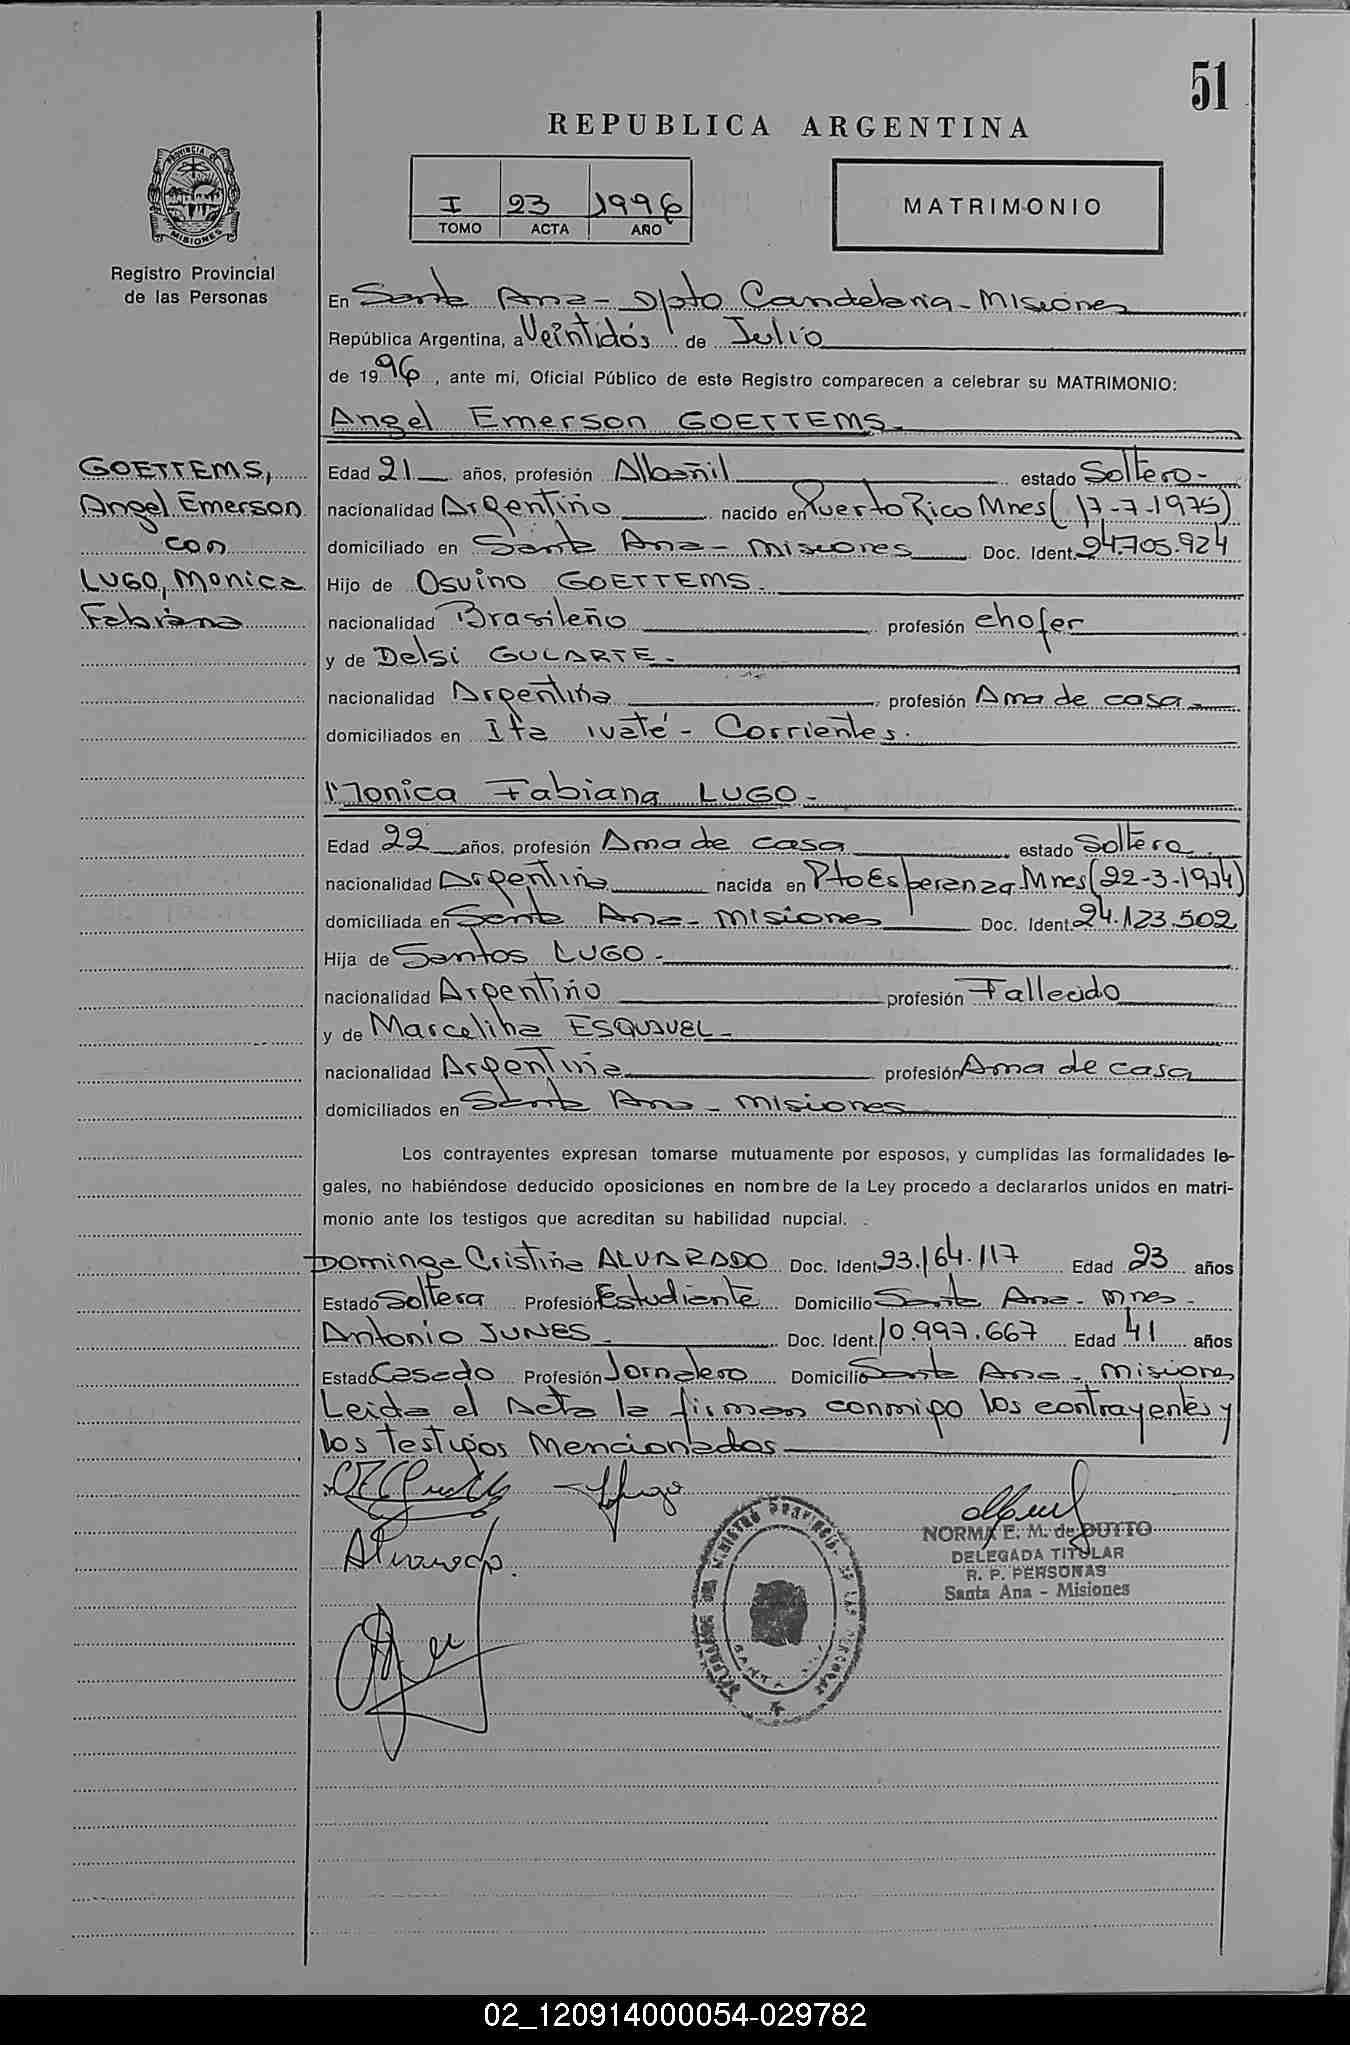 51
REPUBLICA ARGENTINA
I 23 1996
TOMO ACTA AÑO
MATRIMONIO
PROVINCIA DE
MISIONES
Registro Provincial
de las Personas
En Santa Ana - Dpto Candelaria - Misiones
República Argentina, a Veintidós de Julio
de 1996, ante mí, Oficial Público de este Registro comparecen a celebrar su MATRIMONIO:
Angel Emerson GOETTEMS.
GOETTEMS,
Angel Emerson
con
LUGO, Monica
Fabiana
Edad 21 años, profesión Albañil estado Soltero-
nacionalidad Argentino nacido en Puerto Rico Mnes (17-7-1975)
domiciliado en Santa Ana - Misiones Doc. Ident. 24.705.924
Hijo de Osvino GOETTEMS.
nacionalidad Brasileño profesión chofer
y de Delsi GULARTE.
nacionalidad Argentina, profesión Ama de casa
domiciliados en Ita ivaté - Corrientes.
Monica Fabiana LUGO-
Edad 22 años, profesión Ama de casa estado Soltera
nacionalidad Argentina nacida en Pto Esperanza Mnes (22-3-1974)
domiciliada en Santa Ana - Misiones Doc. Ident. 24.123.502
Hija de Santos LUGO.
nacionalidad Argentino profesión Fallecido
y de Marcelina ESQUIVEL-
nacionalidad Argentina profesión Ama de casa
domiciliados en Santa Ana - Misiones
Los contrayentes expresan tomarse mutuamente por esposos, y cumplidas las formalidades le-
gales, no habiéndose deducido oposiciones en nombre de la Ley procedo a declararlos unidos en matri-
monio ante los testigos que acreditan su habilidad nupcial.
Dominga Cristina ALVARADO Doc. Ident 23.164.117 Edad 23 años
Estado Soltera Profesión Estudiante Domicilio Santa Ana - Mnes -
Antonio JUNES. Doc. Ident. 10.997.667 Edad 41 años
Estado Casado Profesión Jornalero Domicilio Santa Ana - Misiones
Leida el Acta la firman conmigo los contrayentes y
los testigos Mencionados
Lugo
Alvarado.
NORMA E. M. de DUTTO
DELEGADA TITULAR
R. P. PERSONAS
Santa Ana - Misiones
02_120914000054-029782